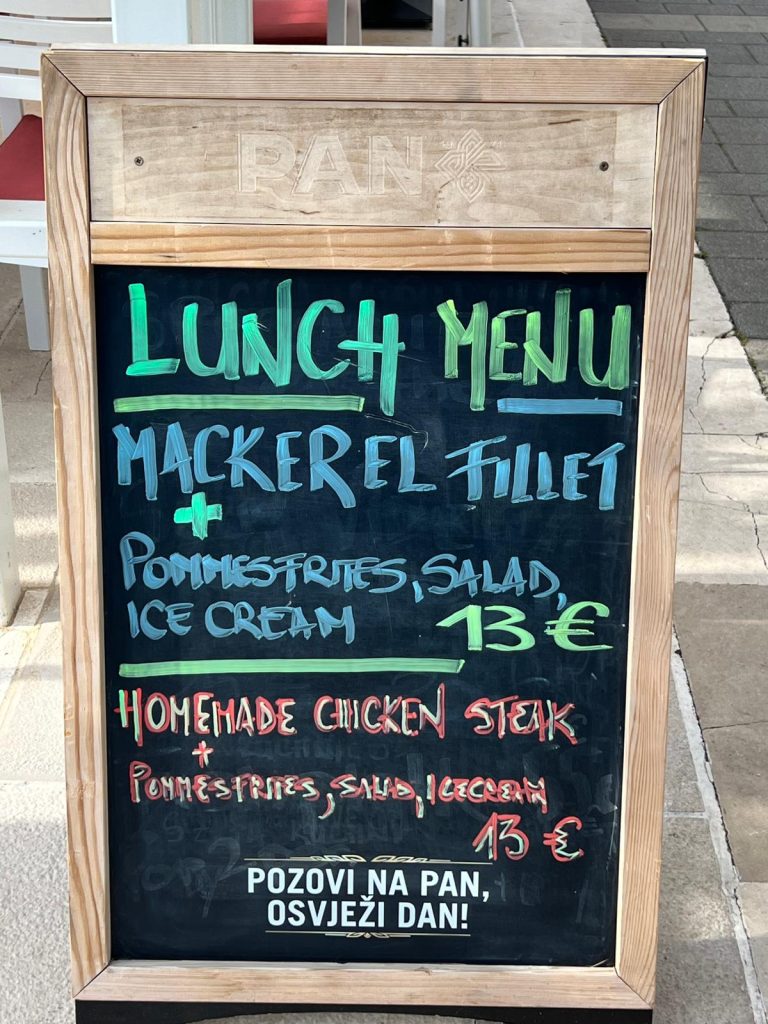 PAN
LUNCH MENU
MACKEREL FILLET
+
POMMESFRITES, SALAD,
ICE CREAM 13 €
HOMEMADE CHICKEN STEAK
+
POMMESFRITES, SALAD, ICECREAM
13 €
POZOVI NA PAN,
OSVJEŽI DAN!